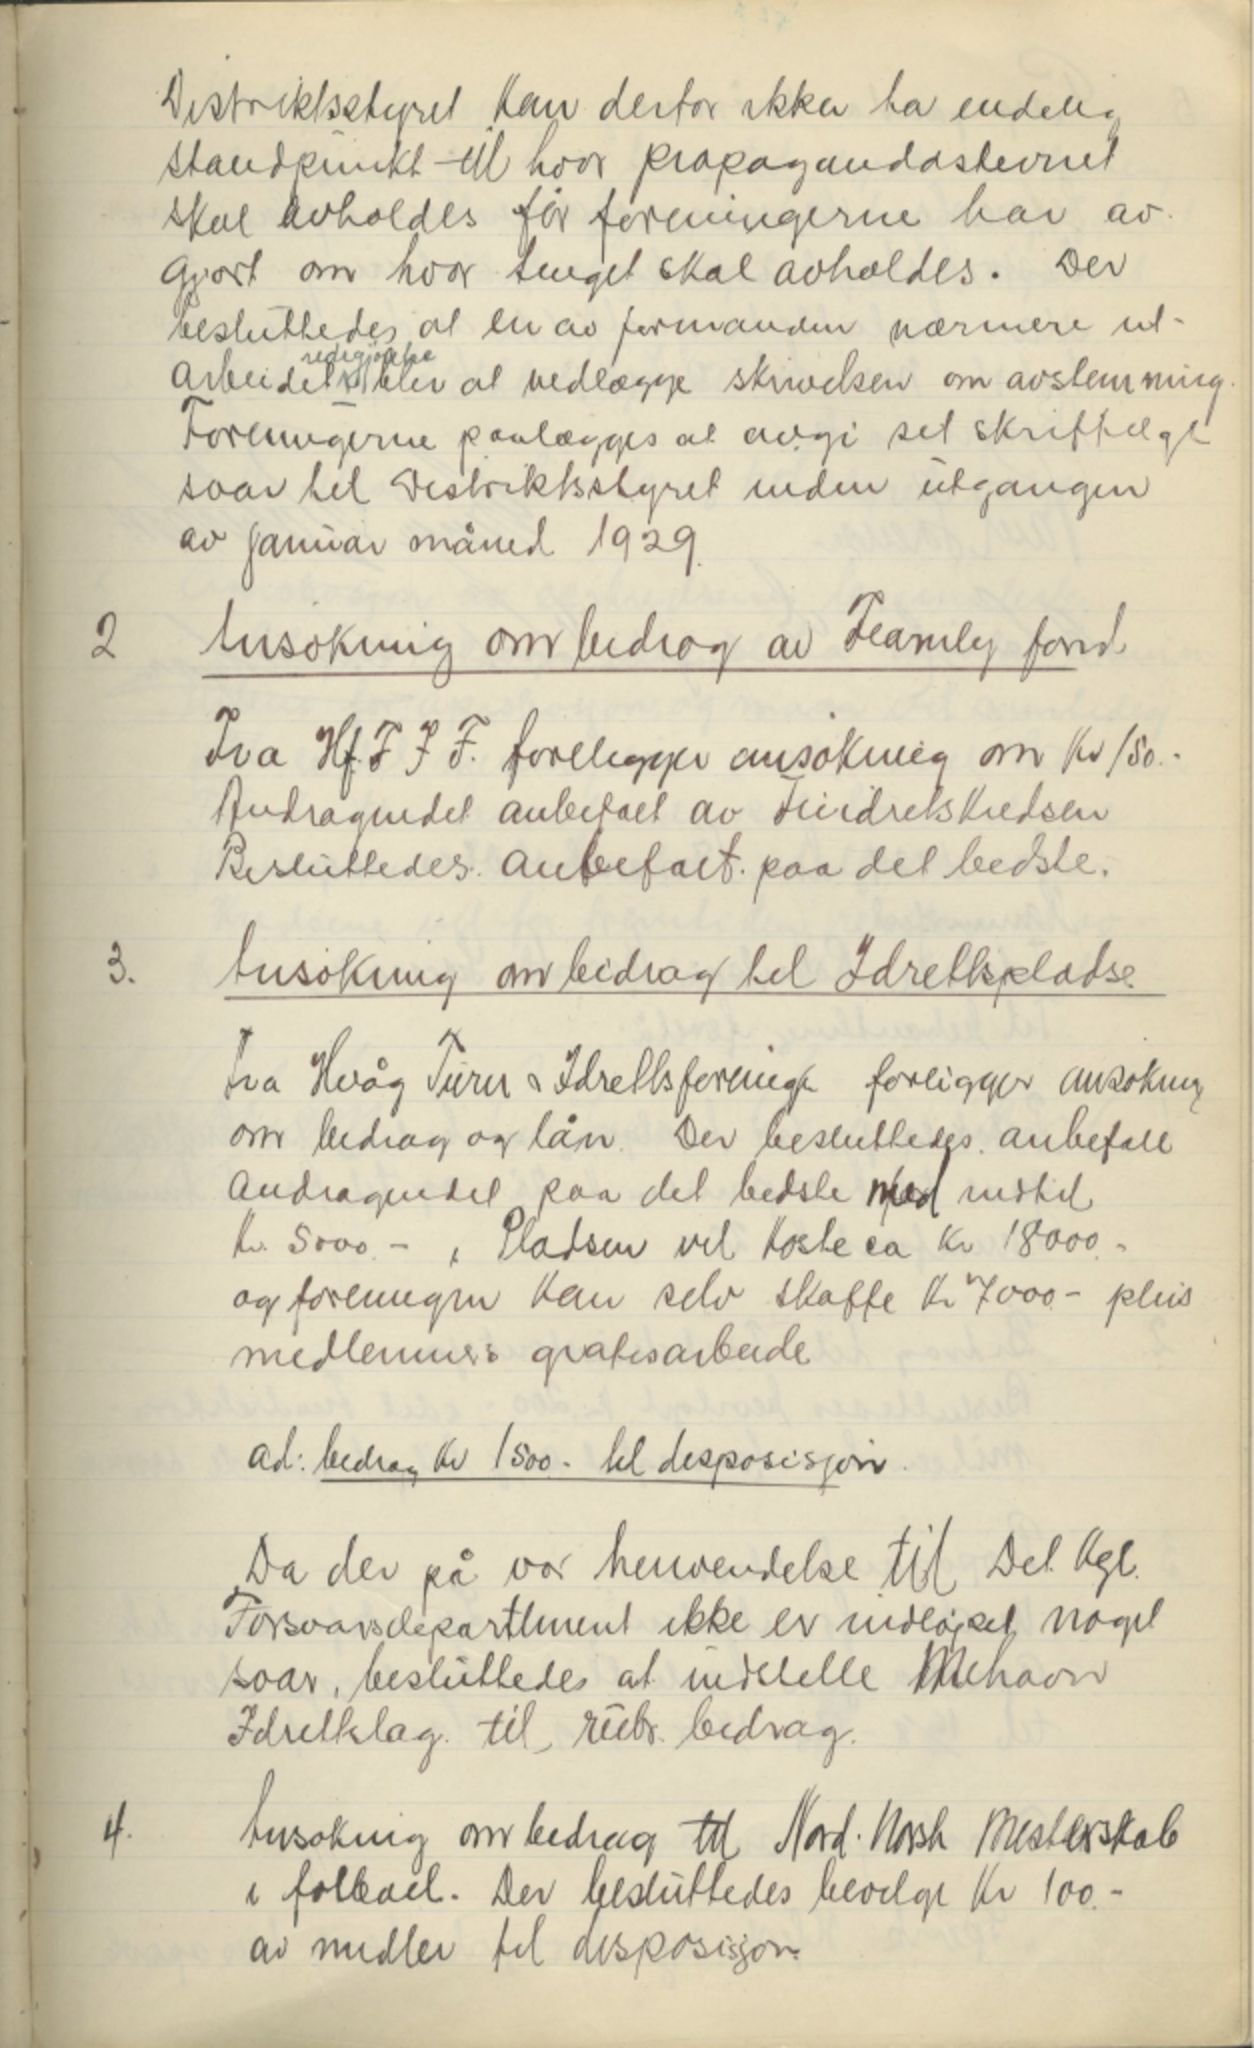 Distriktsstyret kan derfor ikke ta endelig
standpunkt til hvor propagandastevnet
skal avholdes før foreningerne har av-
gjort om hvor tinget skal avholdes. Der
besluttedes at en av formanden nærmere ut-
redegjørelse
arbeidet blev at vedlægge skrivelsen om avstemning.
Foreningerne paalægges at avgi set skriftlige
svar til Distriktsstyret inden utgangen
av januar måned 1929.
2 Ansökning om bidrag av Fearnley fond
Fra Hf. T I F. foreligger ansökning om Kr 150.-
Andragendet anbefalt av Finidretskredsen
Besluttedes anbefalt paa det bedste.
3. Ansökning om bidrag til Idrettsplads.
Fra Hvåg Turn & Idrettsforening foreligger ansökning
om bidrag og lån. Der besluttedes anbefale
andragendet paa det bedste med indtil
Kr. 5000.-, Pladsen vil koste ca Kr 18000.-
og foreningen kan selv skaffe Kr 7000.- plus
medlemmers gratisarbeide
ad: bidrag Kr 1500.- til disposisjon.
Da der på vor henvendelse til Det Kgl.
Forsvarsdepartement ikke er indløpet noget
svar, besluttedes at indstille Mehavn
Idrettslag til rubr. bidrag.
4. Ansökning om bidrag til Nord-Norsk Mesterskab
i fotball. Der besluttedes bevilge Kr 100.-
av midler til disposisjon.